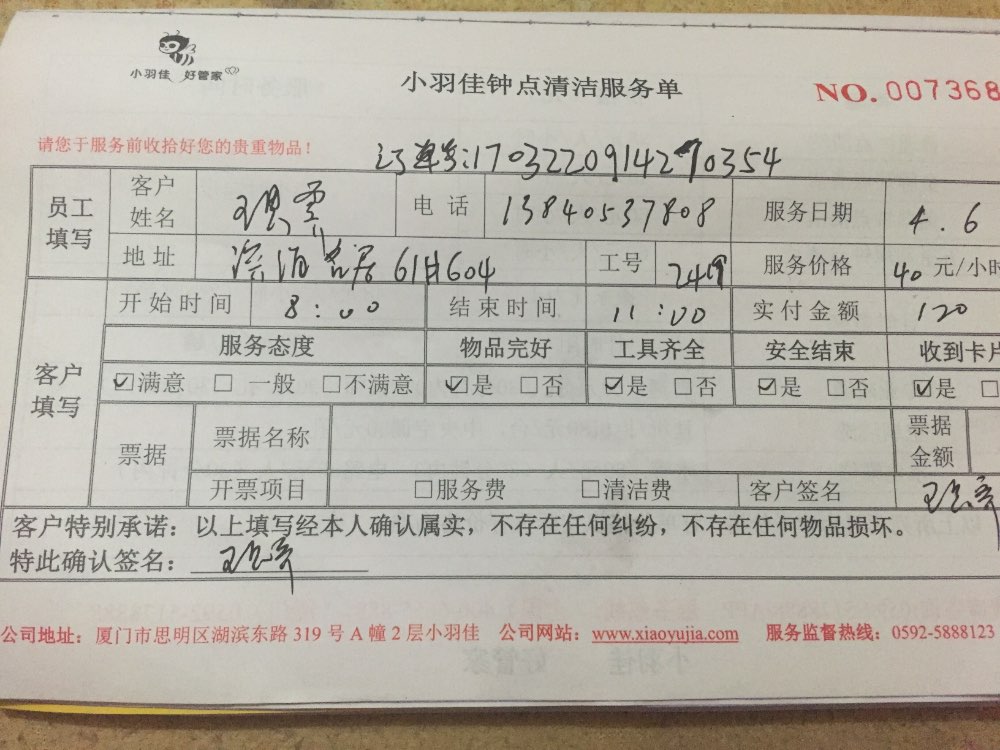 小羽佳 好管家
小羽佳钟点清洁服务单
NO. 007368
请您于服务前收拾好您的贵重物品!
订单号:1703220914270354
员工填写 客户姓名 电话 13840537808 服务日期 4.6
地址 名居 61#604 工号 2409 服务价格 40 元/小时
客户填写 开始时间 8:00 结束时间 11:00 实付金额 120
服务态度 物品完好 工具齐全 安全结束 收到卡片
☑满意 □一般 □不满意 ☑是 □否 ☑是 □否 ☑是 □否 ☑是 □
票据 票据名称 票据金额
开票项目 □服务费 □清洁费 客户签名
客户特别承诺:以上填写经本人确认属实,不存在任何纠纷,不存在任何物品损坏。
特此确认签名:
公司地址:厦门市思明区湖滨东路 319 号 A 幢 2 层小羽佳 公司网站:www.xiaoyujia.com 服务监督热线:0592-5888123